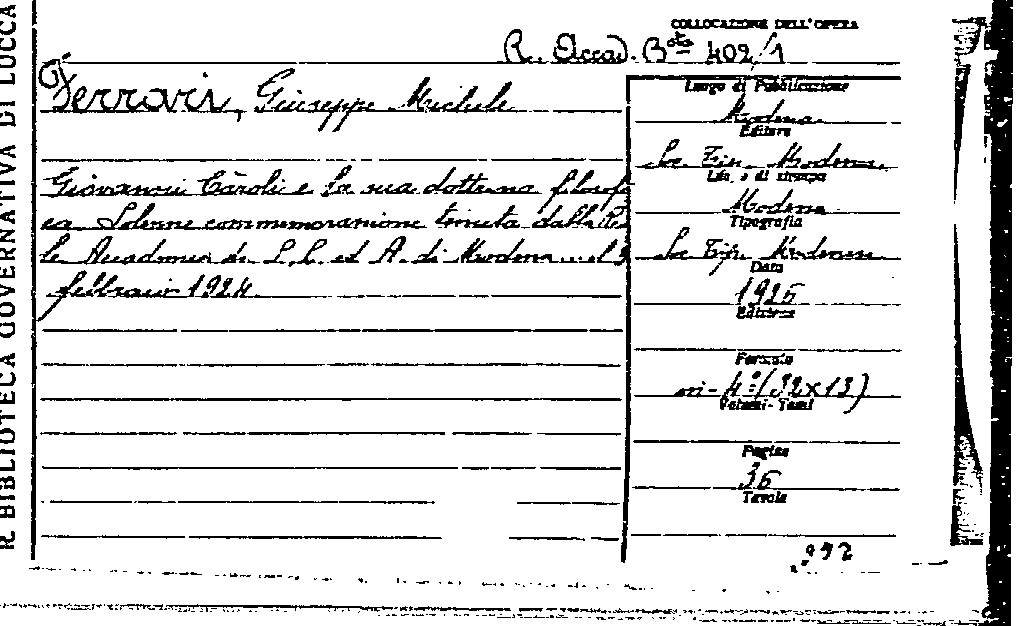 R. BIBLIOTECA GOVERNATIVA DI LUCCA
COLLOCAZIONE DELL'OPERA
R. Accad. Bta 402/1
Ferrari, Giuseppe Michele
Giovanni Càroli e la sua dottrina filosofi
ca. Solenne commemorazione tenuta dalla Rea
le Accademia di S. L. ed A. di Modena il 3
febbraio 1924
Luogo di Pubblicazione
Modena
Editore
Soc. Tip. Modenese
Ldo, e di stampa
Modena
Tipografia
Soc. Tip. Modenese
Data
1925
Edizione
Formato
in-4° (32x13)
Volumi-Tomi
Pagine
36
Tavole